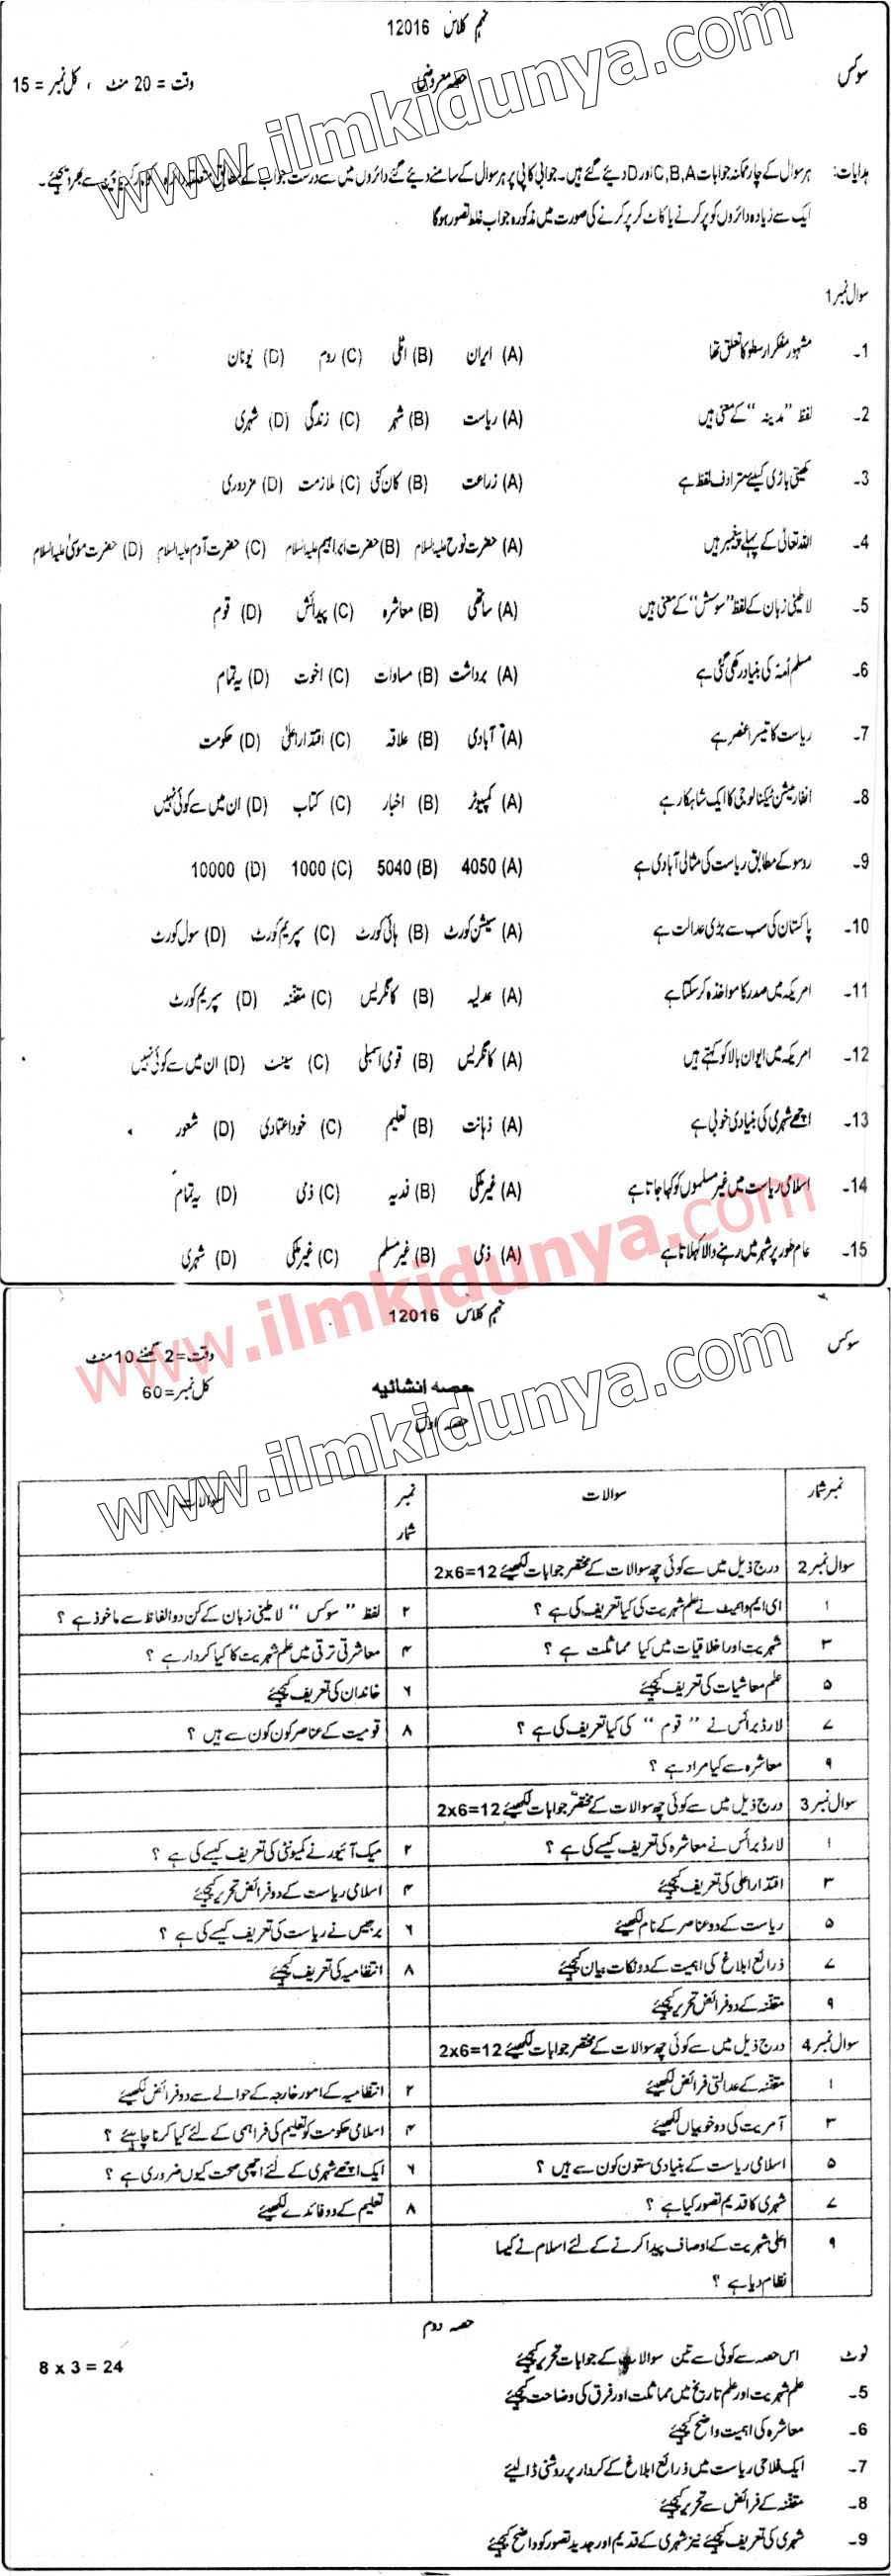 نہم کلاس 12016
سوکس
حصہ معروضی
وقت = 20 منٹ ، کل نمبر = 15
www.ilmkidunya.com
ہدایات: ہر سوال کے چار ممکنہ جوابات C,B,A اور D دیئے گئے ہیں۔ جوابی کاپی پر ہر سوال کے سامنے دیئے گئے دائروں میں سے درست جواب کے مطابق متعلقہ دائرہ کو مارکر یا پین سے بھر دیجیئے۔
ایک سے زیادہ دائروں کو پُر کرنے یا کاٹ کر پُر کرنے کی صورت میں مذکورہ جواب غلط تصور ہوگا
سوال نمبر 1
1۔ مشہور مفکر ارسطو کا تعلق تھا (A) ایران (B) اٹلی (C) روم (D) یونان
2۔ لفظ "مدینہ" کے معنی ہیں (A) ریاست (B) شہر (C) زندگی (D) شہری
3۔ کھیتی باڑی کیلئے مترادف لفظ ہے (A) زراعت (B) کان کنی (C) ملازمت (D) مزدوری
4۔ اللہ تعالیٰ کے پہلے پیغمبر ہیں (A) حضرت نوح علیہ السلام (B) حضرت ابراہیم علیہ السلام (C) حضرت آدم علیہ السلام (D) حضرت موسیٰ علیہ السلام
5۔ لاطینی زبان کے لفظ "سوشس" کے معنی ہیں (A) ساتھی (B) معاشرہ (C) پیدائش (D) قوم
6۔ مسلم اُمہ کی بنیاد رکھی گئی ہے (A) برداشت (B) مساوات (C) اخوت (D) یہ تمام
7۔ ریاست کا تیسرا عنصر ہے (A) آبادی (B) علاقہ (C) اقتدار اعلیٰ (D) حکومت
8۔ انفارمیشن ٹیکنالوجی کا ایک شاہکار ہے (A) کمپیوٹر (B) اخبار (C) کتاب (D) ان میں سے کوئی نہیں
9۔ روسو کے مطابق ریاست کی مثالی آبادی ہے (A) 4050 (B) 5040 (C) 1000 (D) 10000
10۔ پاکستان کی سب سے بڑی عدالت ہے (A) سیشن کورٹ (B) ہائی کورٹ (C) سپریم کورٹ (D) سول کورٹ
11۔ امریکہ میں صدر کا مواخذہ کر سکتا ہے (A) عدلیہ (B) کانگریس (C) مقننہ (D) سپریم کورٹ
12۔ امریکہ میں ایوان بالا کو کہتے ہیں (A) کانگریس (B) قومی اسمبلی (C) سینٹ (D) ان میں سے کوئی نہیں
13۔ اچھے شہری کی بنیادی خوبی ہے (A) ذہانت (B) تعلیم (C) خود اعتمادی (D) شعور
14۔ اسلامی ریاست میں غیر مسلموں کو کہا جاتا ہے (A) غیر ملکی (B) فدیہ (C) ذمی (D) یہ تمام
15۔ عام طور پر شہر میں رہنے والا کہلاتا ہے (A) ذمی (B) غیر مسلم (C) غیر ملکی (D) شہری
www.ilmkidunya.com
نہم کلاس 12016
سوکس
وقت = 2 گھنٹے 10 منٹ
حصہ انشائیہ
کل نمبر = 60
حصہ اول
www.ilmkidunya.com
نمبر شمار سوالات نمبر شمار سوالات
سوال نمبر 2 درج ذیل میں سے کوئی چھ سوالات کے مختصر جوابات لکھیئے 2x6=12
۱ ای ایم وائیٹ نے علم شہریت کی کیا تعریف کی ہے ؟ ۲ لفظ "سوکس" لاطینی زبان کے کن دو الفاظ سے ماخوذ ہے ؟
۳ شہریت اور اخلاقیات میں کیا مماثلت ہے ؟ ۴ معاشرتی ترقی میں علم شہریت کا کیا کردار ہے ؟
۵ علم معاشیات کی تعریف کیجیئے ۶ خاندان کی تعریف کیجیئے
۷ لارڈ برائس نے "قوم" کی کیا تعریف کی ہے ؟ ۸ قومیت کے عناصر کون کون سے ہیں ؟
۹ معاشرہ سے کیا مراد ہے ؟
سوال نمبر 3 درج ذیل میں سے کوئی چھ سوالات کے مختصر جوابات لکھیئے 2x6=12
۱ لارڈ برائس نے معاشرہ کی تعریف کیسے کی ہے ؟ ۲ میک آئیور نے کمیونٹی کی تعریف کیسے کی ہے ؟
۳ اقتدار اعلیٰ کی تعریف کیجیئے ۴ اسلامی ریاست کے دو فرائض تحریر کیجیئے
۵ ریاست کے دو عناصر کے نام لکھیئے ۶ برجیس نے ریاست کی تعریف کیسے کی ہے ؟
۷ ذرائع ابلاغ کی اہمیت کے دو نکات بیان کیجیئے ۸ انتظامیہ کی تعریف کیجیئے
۹ مقننہ کے دو فرائض تحریر کیجیئے
سوال نمبر 4 درج ذیل میں سے کوئی چھ سوالات کے مختصر جوابات لکھیئے 2x6=12
۱ مقننہ کے عدالتی فرائض لکھیئے ۲ انتظامیہ کے امور خارجہ کے حوالے سے دو فرائض لکھیئے
۳ آمریت کی دو خوبیاں لکھیئے ۴ اسلامی حکومت کو تعلیم کی فراہمی کے لئے کیا کرنا چاہیئے ؟
۵ اسلامی ریاست کے بنیادی ستون کون سے ہیں ؟ ۶ ایک اچھے شہری کے لئے اچھی صحت کیوں ضروری ہے ؟
۷ شہری کا قدیم تصور کیا ہے ؟ ۸ تعلیم کے دو فائدے لکھیئے
۹ اعلیٰ شہریت کے اوصاف پیدا کرنے کے لئے اسلام نے کیسا
نظام دیا ہے ؟
حصہ دوم
نوٹ اس حصہ سے کوئی سے تین سوالات کے جوابات تحریر کیجیئے 8 x 3 = 24
5۔ علم شہریت اور علم تاریخ میں مماثلت اور فرق کی وضاحت کیجیئے
6۔ معاشرہ کی اہمیت واضح کیجیئے
7۔ ایک فلاحی ریاست میں ذرائع ابلاغ کے کردار پر روشنی ڈالیئے
8۔ مقننہ کے فرائض سے تحریر کیجیئے
9۔ شہری کی تعریف کیجیئے نیز شہری کے قدیم اور جدید تصور کو واضح کیجیئے